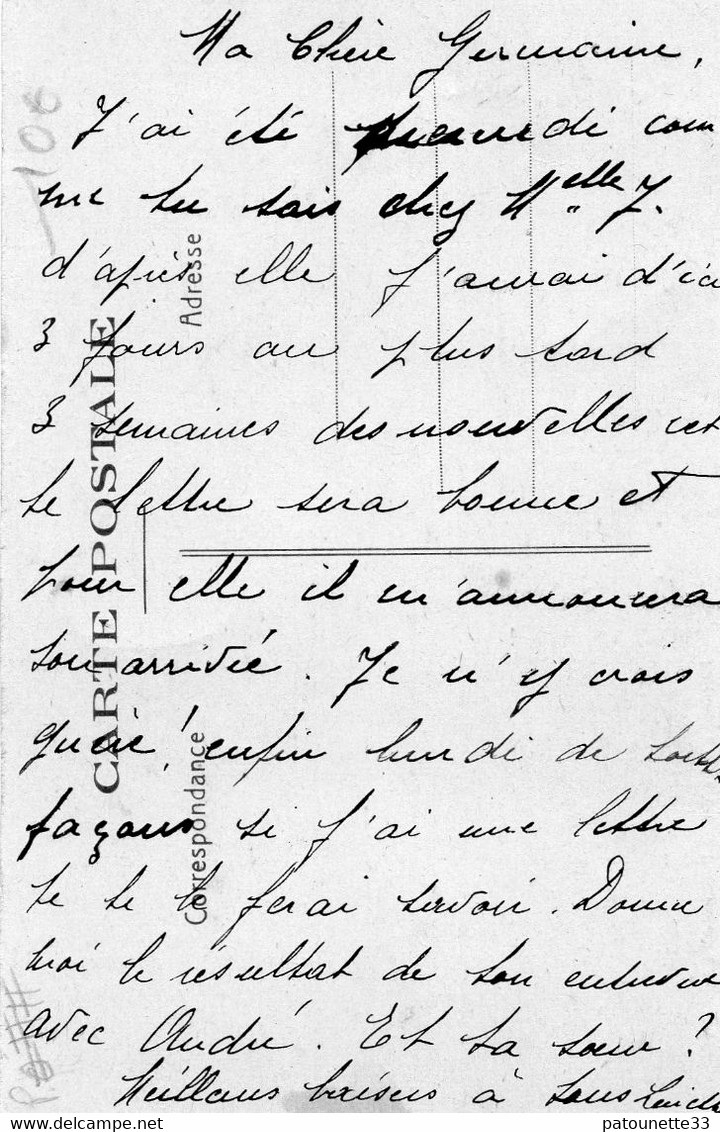 Ma Chère Germaine,
J'ai été mardi com
me tu sais chez Melle J.
d'après elle j'aurai d'ici
3 jours au plus tard
3 semaines des nouvelles cet
te lettre sera bonne et
pour elle il m'annoncera
son arrivée. Je n'y crois
guère! enfin lundi de toutes
façons si j'ai une lettre
je te le ferai savoir. Donne
moi le résultat de ton entrevue
avec André. Et ta sœur?
Meilleurs baisers à tous
CARTE POSTALE
Correspondance
Adresse
100
patounette33